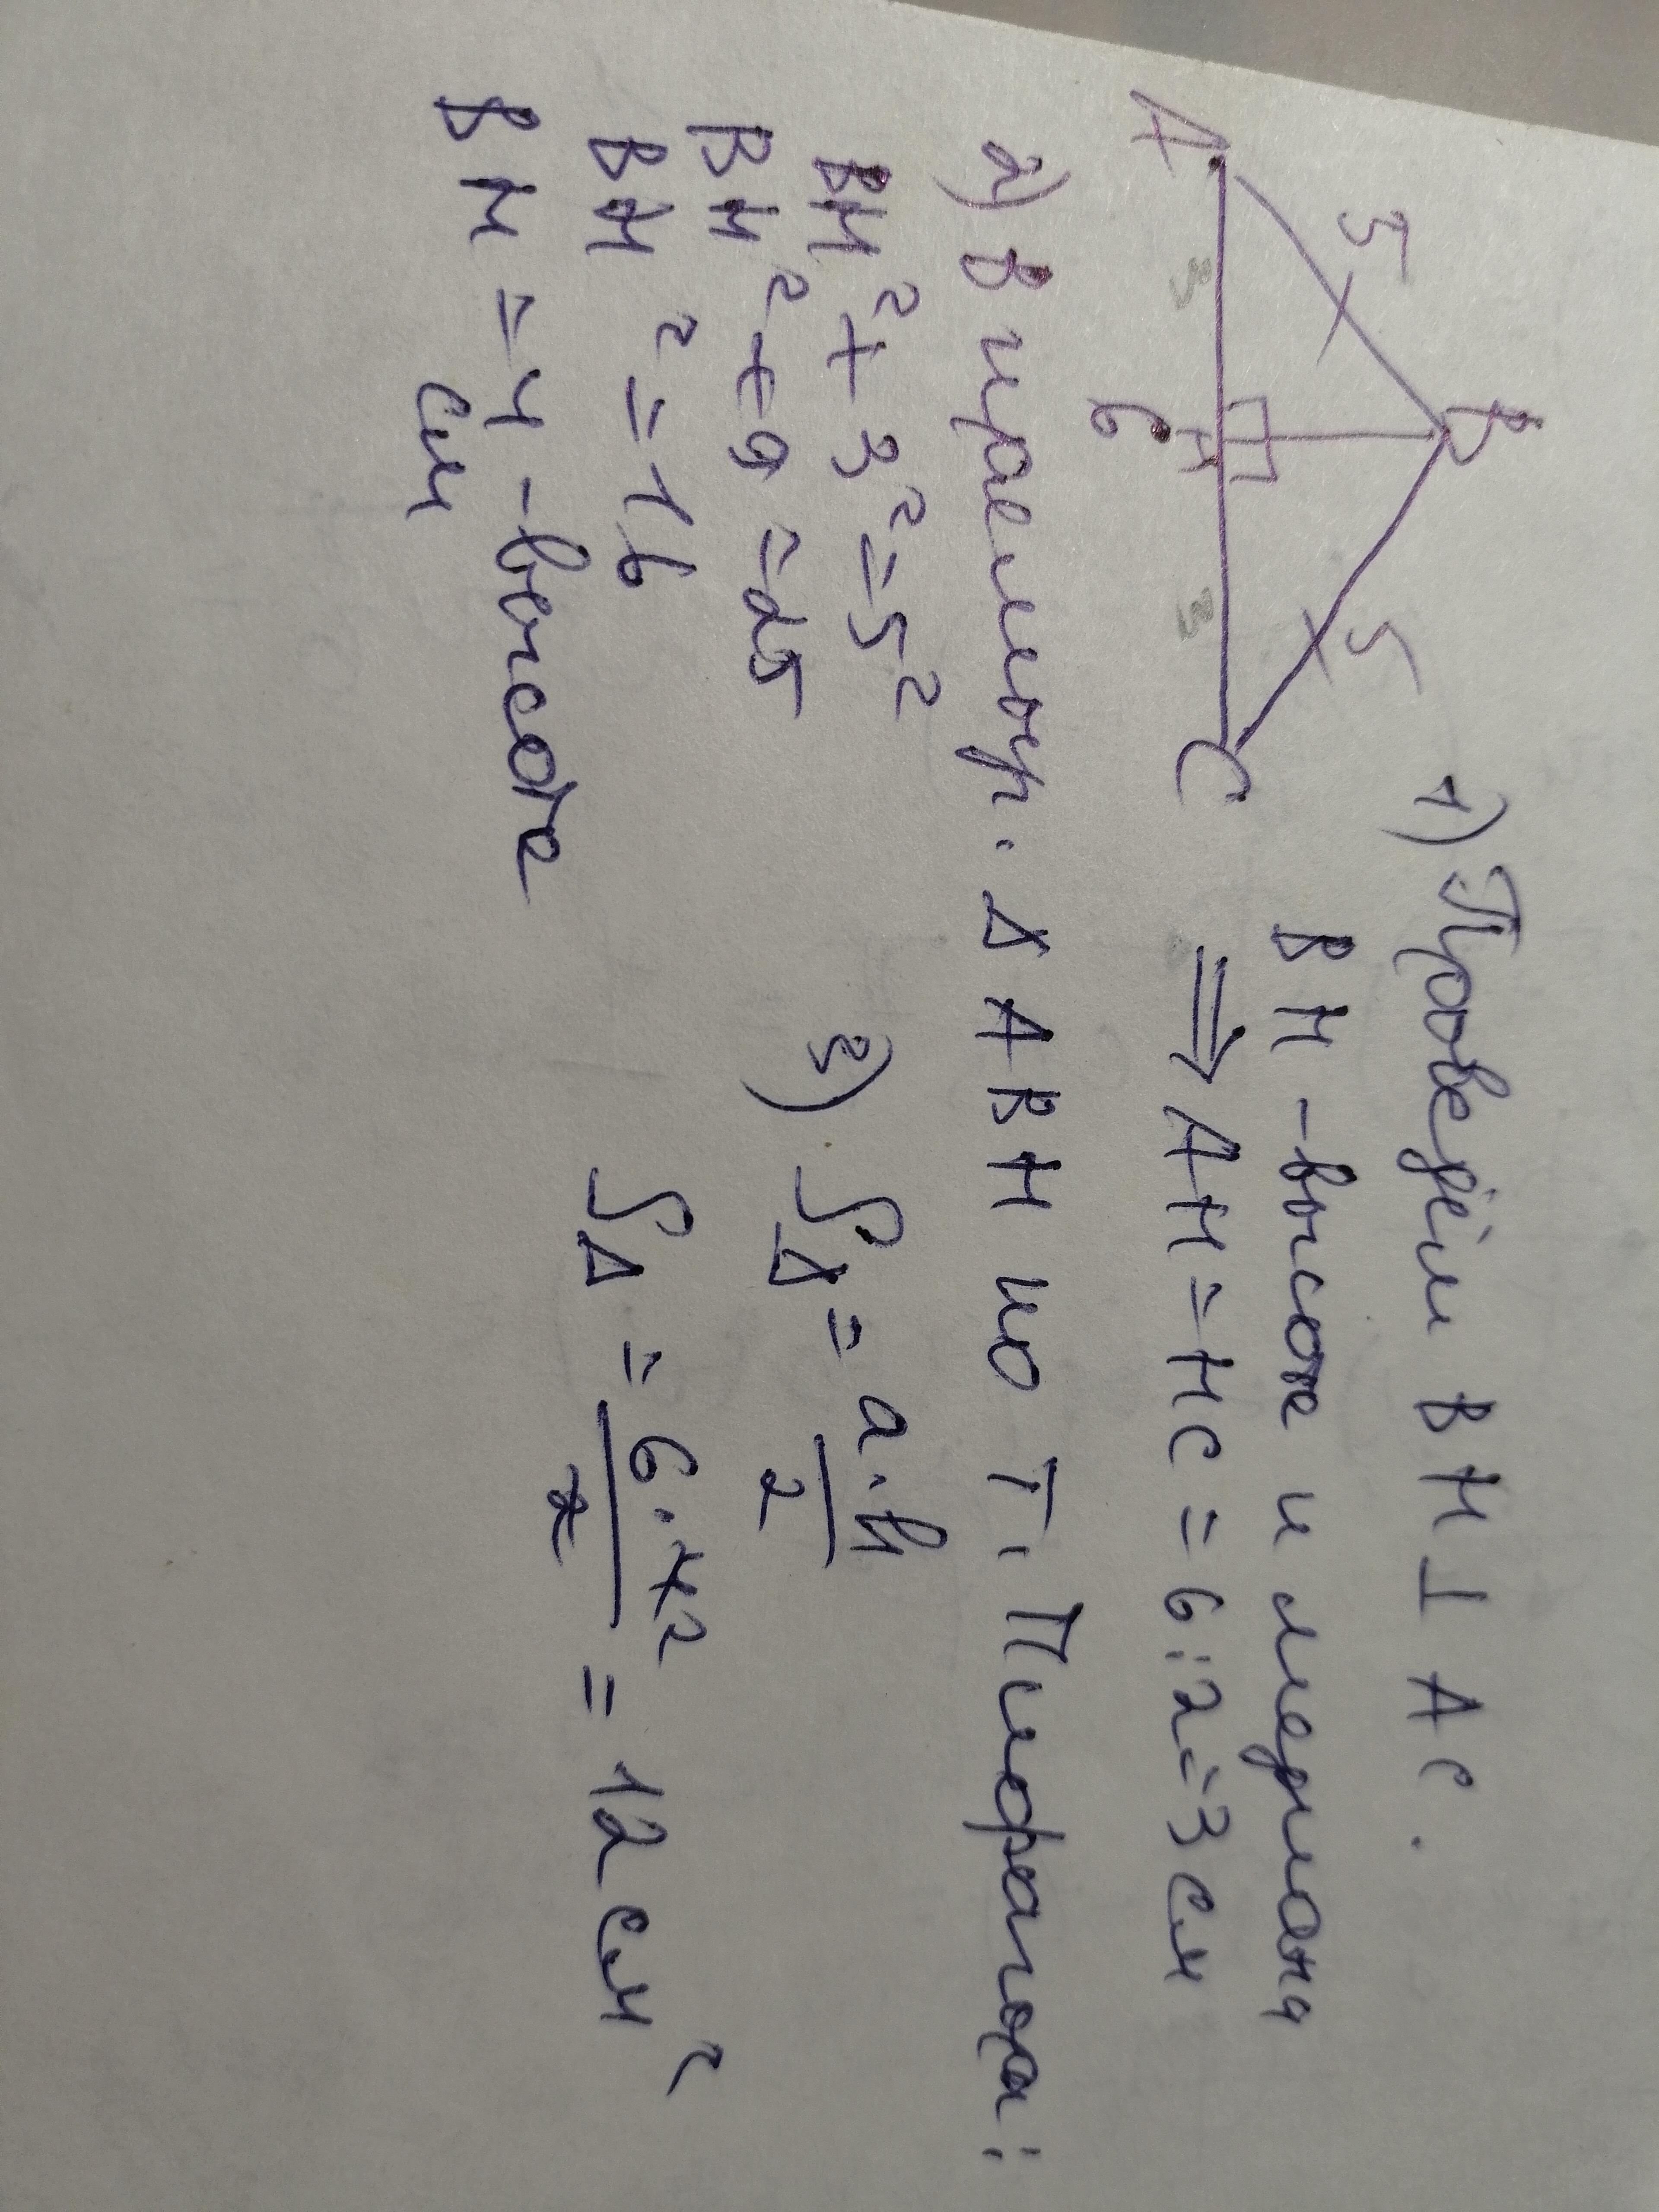 B
5
5
3
3
A
H
C
6
1) Проведём BH ⊥ AC.
BH - высота и медиана
⇒ AH = HC = 6:2=3 см
2) В прямоуг. Δ ABH по т. Пифагора:
BH² + 3² = 5²
BH² + 9 = 25
BH² = 16
BH = 4 - высота
см
3) S Δ = a·h / 2
S Δ = 6·4² / 2 = 12 см²